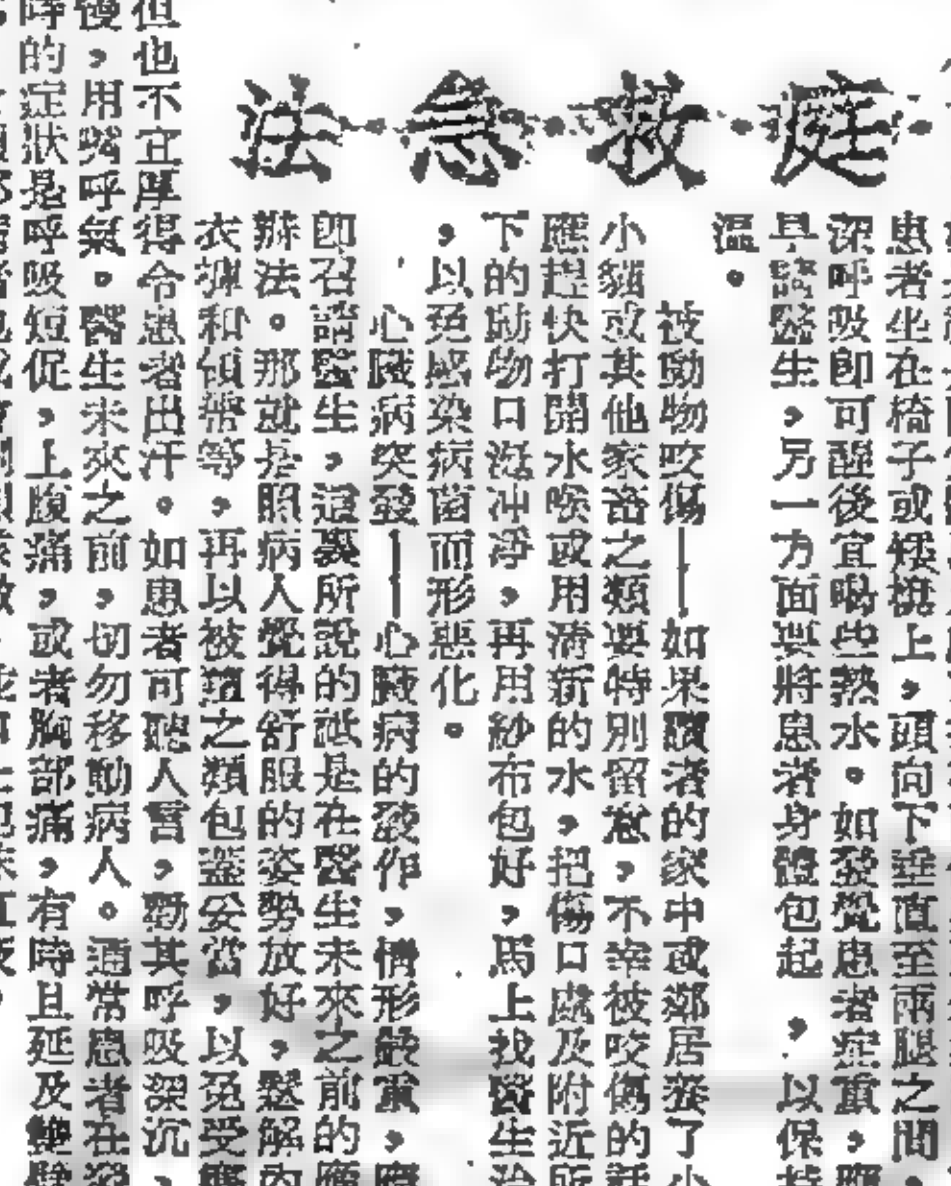 庭救急法
患者坐在椅子或矮櫈上，頭向下垂直至兩腿之間，
深呼吸卽可醒後宜喝些熱水。如發覺患者症重，應
早請醫生，另一方面要將患者身體包起，以保持
溫。
被動物咬傷——如果讀者的家中或鄰居養了小
小貓或其他家畜之類要特別留意，不幸被咬傷的話
應趕快打開水喉或用清新的水，把傷口處及附近所
下的動物口涎冲淨，再用紗布包好，馬上找醫生治
，以免感染病菌而形惡化。
心臟病突發——心臟病的發作，情形嚴重，應
卽召請醫生，這裏所說的祗是在醫生未來之前的應
辦法。那就是照病人覺得舒服的姿勢放好，鬆解內
衣褲和領帶等，再以被氊之類包蓋妥當，以免受
但也不宜厚得令患者出汗。如患者可聽人言，勸其呼吸深沉，
慢，用嘴呼氣。醫生未來之前，切勿移動病人。通常患者在
時的症狀是呼吸短促，上腹痛，或者胸部痛，有時且延及雙臂